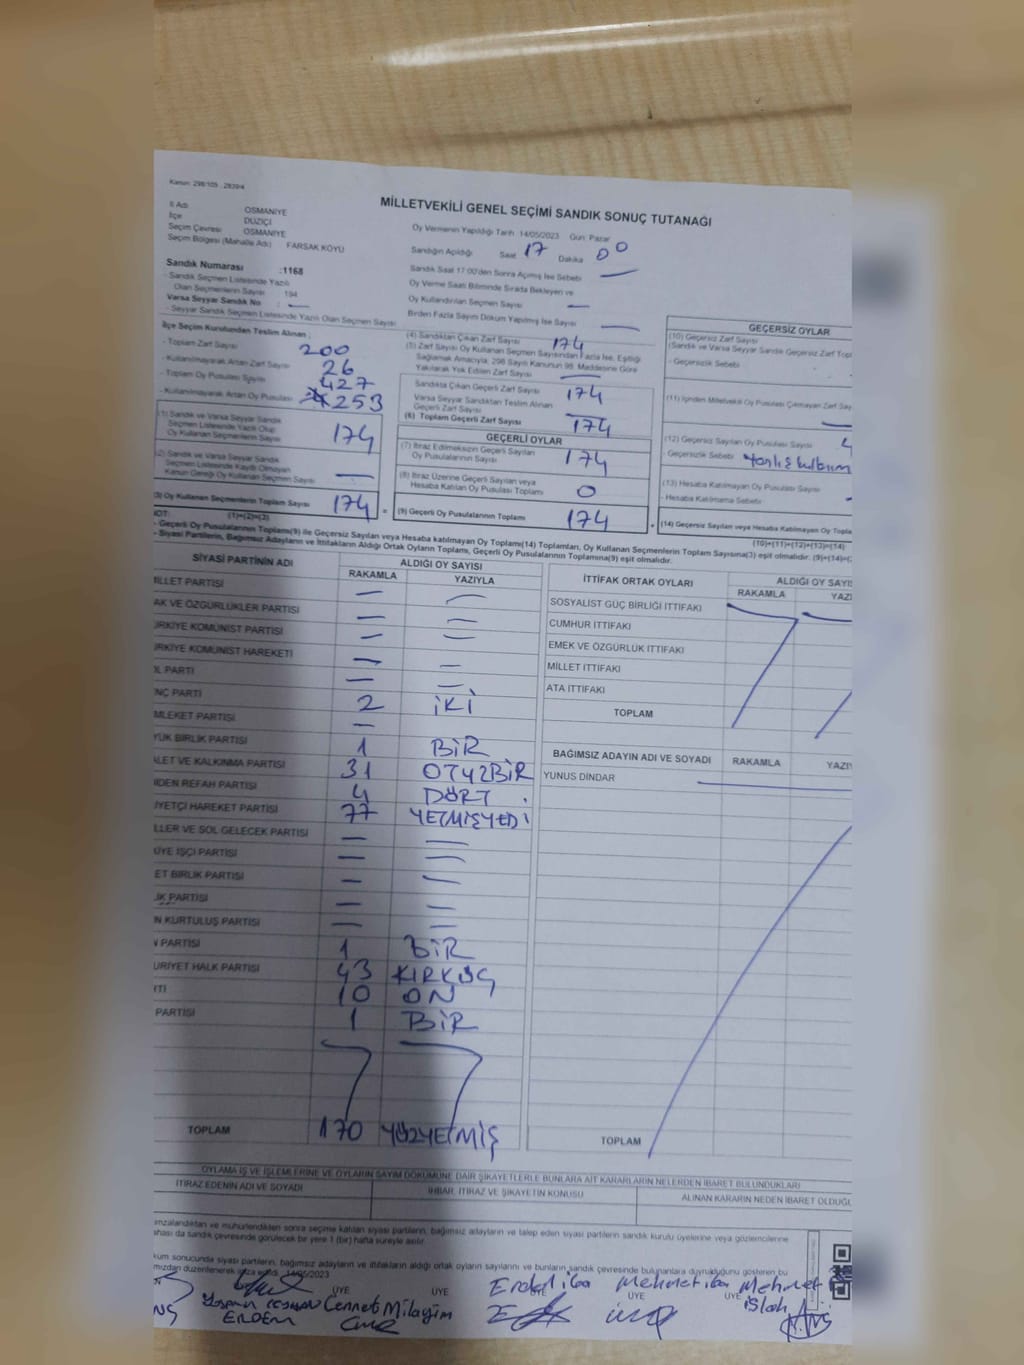 Kanun: 298/105 , 2839/4
MİLLETVEKİLİ GENEL SEÇİMİ SANDIK SONUÇ TUTANAĞI
İl Adı OSMANİYE
İlçe DÜZİÇİ
Seçim Çevresi OSMANİYE
Seçim Bölgesi (Mahalle Adı) FARSAK KÖYÜ
Oy Vermenin Yapıldığı Tarih 14/05/2023 Gün: Pazar
Sandığın Açıldığı Saat 17 Dakika 00
Sandık Saat 17:00'den Sonra Açılmış İse Sebebi —
Oy Verme Saati Bitiminde Sırada Bekleyen ve
Oy Kullandırılan Seçmen Sayısı —
Birden Fazla Sayım Döküm Yapılmış İse Sayısı —
Sandık Numarası :1168
- Sandık Seçmen Listesinde Yazılı
Olan Seçmenlerin Sayısı 194
Varsa Seyyar Sandık No : —
- Seyyar Sandık Seçmen Listesinde Yazılı Olan Seçmen Sayısı
İlçe Seçim Kurulundan Teslim Alınan ;
- Toplam Zarf Sayısı 200
- Kullanılmayarak Artan Zarf Sayısı 26
- Toplam Oy Pusulası Sayısı 427
- Kullanılmayarak Artan Oy Pusulası 253
(1) Sandık ve Varsa Seyyar Sandık
Seçmen Listesinde Yazılı Olup
Oy Kullanan Seçmenlerin Sayısı 174
2) Sandık ve Varsa Seyyar Sandık
Seçmen Listesinde Kayıtlı Olmayan
Kanun Gereği Oy Kullanan Seçmen Sayısı —
3) Oy Kullanan Seçmenlerin Toplam Sayısı 174 =
(1)+(2)=(3)
(4) Sandıktan Çıkan Zarf Sayısı 174
(5) Zarf Sayısı Oy Kullanan Seçmen Sayısından Fazla İse, Eşitliği
Sağlamak Amacıyla; 298 Sayılı Kanunun 98. Maddesine Göre
Yakılarak Yok Edilen Zarf Sayısı —
Sandıkta Çıkan Geçerli Zarf Sayısı 174
Varsa Seyyar Sandıktan Teslim Alınan
Geçerli Zarf Sayısı —
(6) Toplam Geçerli Zarf Sayısı 174
GEÇERLİ OYLAR
(7) İtiraz Edilmeksizin Geçerli Sayılan
Oy Pusulalarının Sayısı 174
(8) İtiraz Üzerine Geçerli Sayılan veya
Hesaba Katılan Oy Pusulası Toplamı 0
(9) Geçerli Oy Pusulalarının Toplamı 174 +
GEÇERSİZ OYLAR
(10) Geçersiz Zarf Sayısı
(Sandık ve Varsa Seyyar Sandık Geçersiz Zarf Topl
- Geçersizlik Sebebi
(11) İçinden Milletvekili Oy Pusulası Çıkmayan Zarf Say
(12) Geçersiz Sayılan Oy Pusulası Sayısı 4
- Geçersizlik Sebebi
(13) Hesaba Katılmayan Oy Pusulası Sayısı
- Hesaba Katılmama Sebebi
(14) Geçersiz Sayılan veya Hesaba Katılmayan Oy Topla
(10)+(11)+(12)+(13)=(14)
NOT:
- Geçerli Oy Pusulalarının Toplamı(9) ile Geçersiz Sayılan veya Hesaba katılmayan Oy Toplamı(14) Toplamları, Oy Kullanan Seçmenlerin Toplam Sayısına(3) eşit olmalıdır. (9)+(14)=(
- Siyasi Partilerin, Bağımsız Adayların ve İttifakların Aldığı Ortak Oyların Toplamı, Geçerli Oy Pusulalarının Toplamına(9) eşit olmalıdır.
SİYASİ PARTİNİN ADI ALDIĞI OY SAYISI
RAKAMLA YAZIYLA
İLLET PARTİSİ — —
AK VE ÖZGÜRLÜKLER PARTİSİ — —
ÜRKİYE KOMÜNİST PARTİSİ — —
ÜRKİYE KOMÜNİST HAREKETİ — —
OL PARTİ — —
NÇ PARTİ 2 İKİ
MLEKET PARTİSİ —
YÜK BİRLİK PARTİSİ 1 BİR
ALET VE KALKINMA PARTİSİ 31 OTUZBİR
İDEN REFAH PARTİSİ 4 DÖRT
İYETÇİ HAREKET PARTİSİ 77 YETMİŞYEDİ
LLER VE SOL GELECEK PARTİSİ — —
İYE İŞÇİ PARTİSİ — —
ET BİRLİK PARTİSİ — —
İK PARTİSİ — —
N KURTULUŞ PARTİSİ — —
N PARTİSİ 1 BİR
URİYET HALK PARTİSİ 43 KIRKÜÇ
RTİ 10 ON
PARTİSİ 1 BİR
TOPLAM 170 YÜZYETMİŞ
İTTİFAK ORTAK OYLARI ALDIĞI OY SAYIS
RAKAMLA YAZI
SOSYALİST GÜÇ BİRLİĞİ İTTİFAKI
CUMHUR İTTİFAKI
EMEK VE ÖZGÜRLÜK İTTİFAKI
MİLLET İTTİFAKI
ATA İTTİFAKI
TOPLAM
BAĞIMSIZ ADAYIN ADI VE SOYADI RAKAMLA YAZIY
YUNUS DİNDAR —
TOPLAM
OYLAMA İŞ VE İŞLEMLERİNE VE OYLARIN SAYIM DÖKÜMÜNE DAİR ŞİKAYETLERLE BUNLARA AİT KARARLARIN NELERDEN İBARET BULUNDUKLARI
İTİRAZ EDENİN ADI VE SOYADI İHBAR, İTİRAZ VE ŞİKAYETİN KONUSU ALINAN KARARIN NEDEN İBARET OLDUĞU
imzalandıktan ve mühürlendikten sonra seçime katılan siyasi partilerin, bağımsız adayların ve talep eden siyasi partilerin sandık kurulu üyelerine veya gözlemcilerine
ahası da sandık çevresinde görülecek bir yere 1 (bir) hafta süreyle asılır.
küm sonucunda siyasi partilerin, bağımsız adayların ve ittifakların aldığı ortak oyların sayılarını ve bunların sandık çevresinde bulunanlara duyrulduğunu gösteren bu
mızdan düzenlenerek imza edildi. 14/05/2023
ÜYE ÜYE ÜYE ÜYE ÜYE
Cennet Milayim
ERDEM
Mehmet